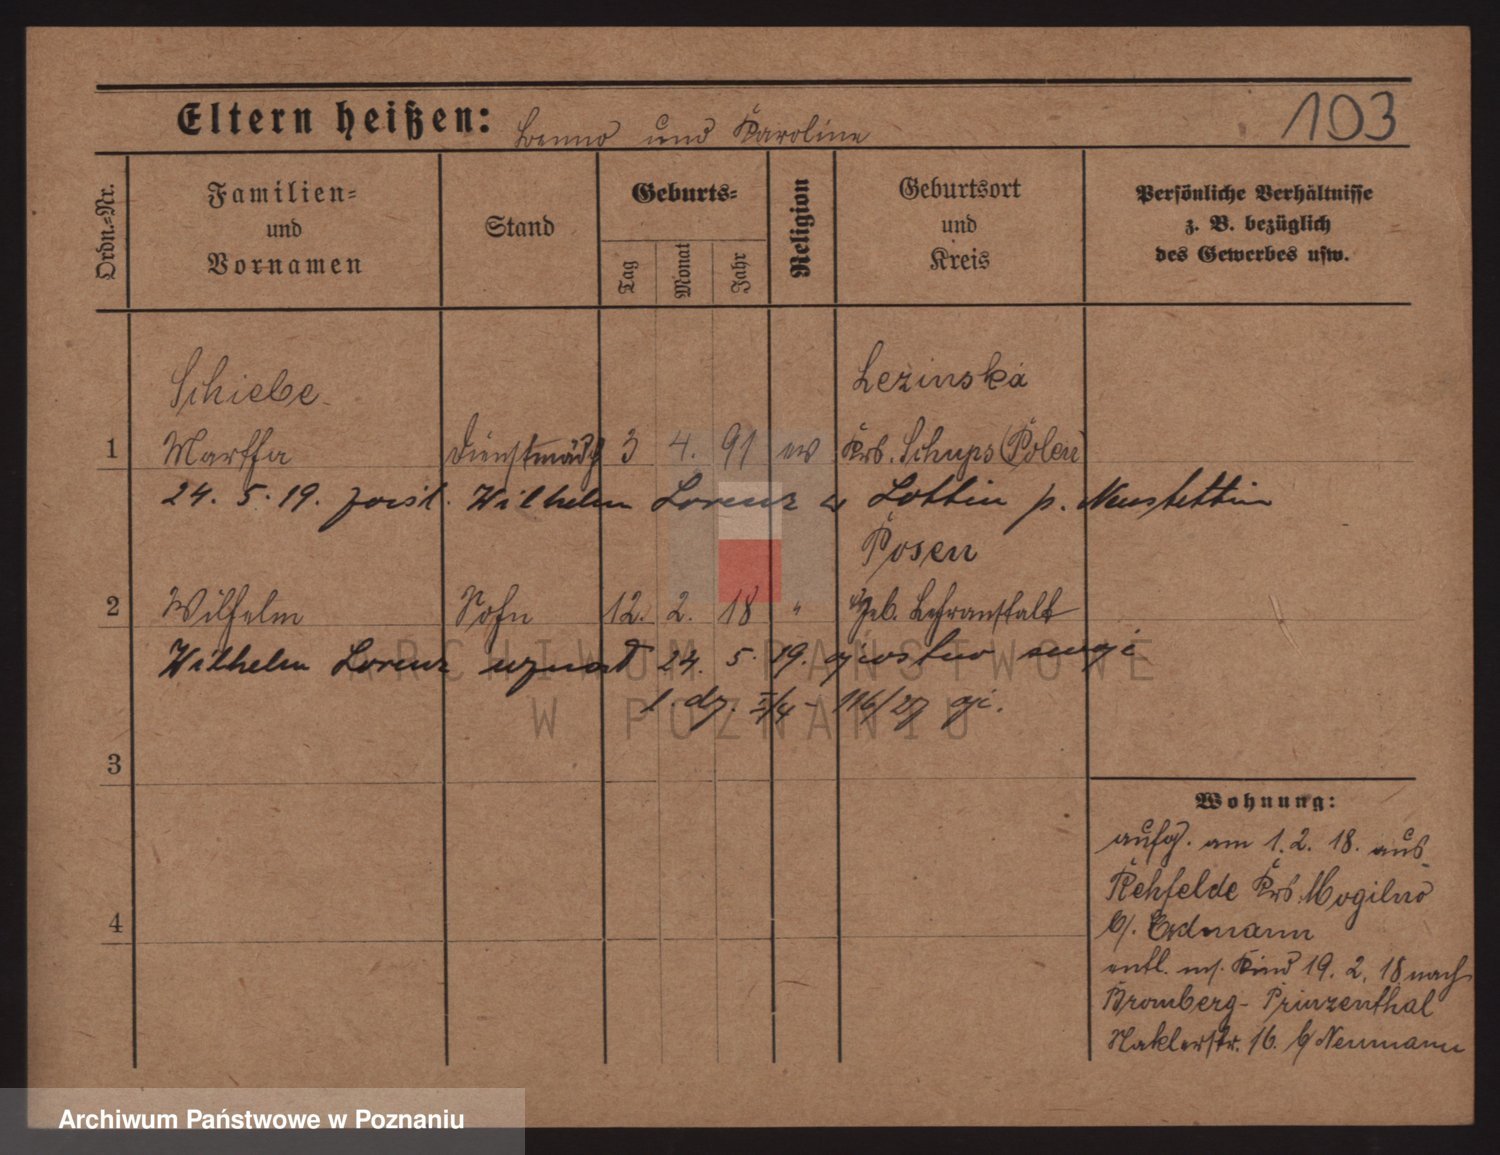 103
Eltern heißen: Benno und Karoline
Ordn.-Nr.
Familien-
und
Vornamen
Stand
Geburts-
Tag
Monat
Jahr
Religion
Geburtsort
und
Kreis
Persönliche Verhältnisse
z. B. bezüglich
des Gewerbes usw.
Schiebe Lezinska
1 Martha Dienstmädch 3 4. 91 ev Krs. Schups (Polen)
24. 5. 19. Wilhelm Lorenz Lottin p. Neustettin
Posen
2 Wilhelm Sohn 12. 2. 18 " Heb. Lehranstalt
Wilhelm Lorenz uznał 24. 5. 19. ojcostwo swoje
l. dz. 116/27
3
4
Wohnung:
aufg. am 1. 2. 18. aus
Rehfelde Krs. Mogilno
b/. Erdmann
entl. m/. Kind 19. 2. 18 nach
Bromberg-Prinzenthal
Naklerstr. 16. b/ Neumann
ARCHIWUM PAŃSTWOWE
W POZNANIU
Archiwum Państwowe w Poznaniu